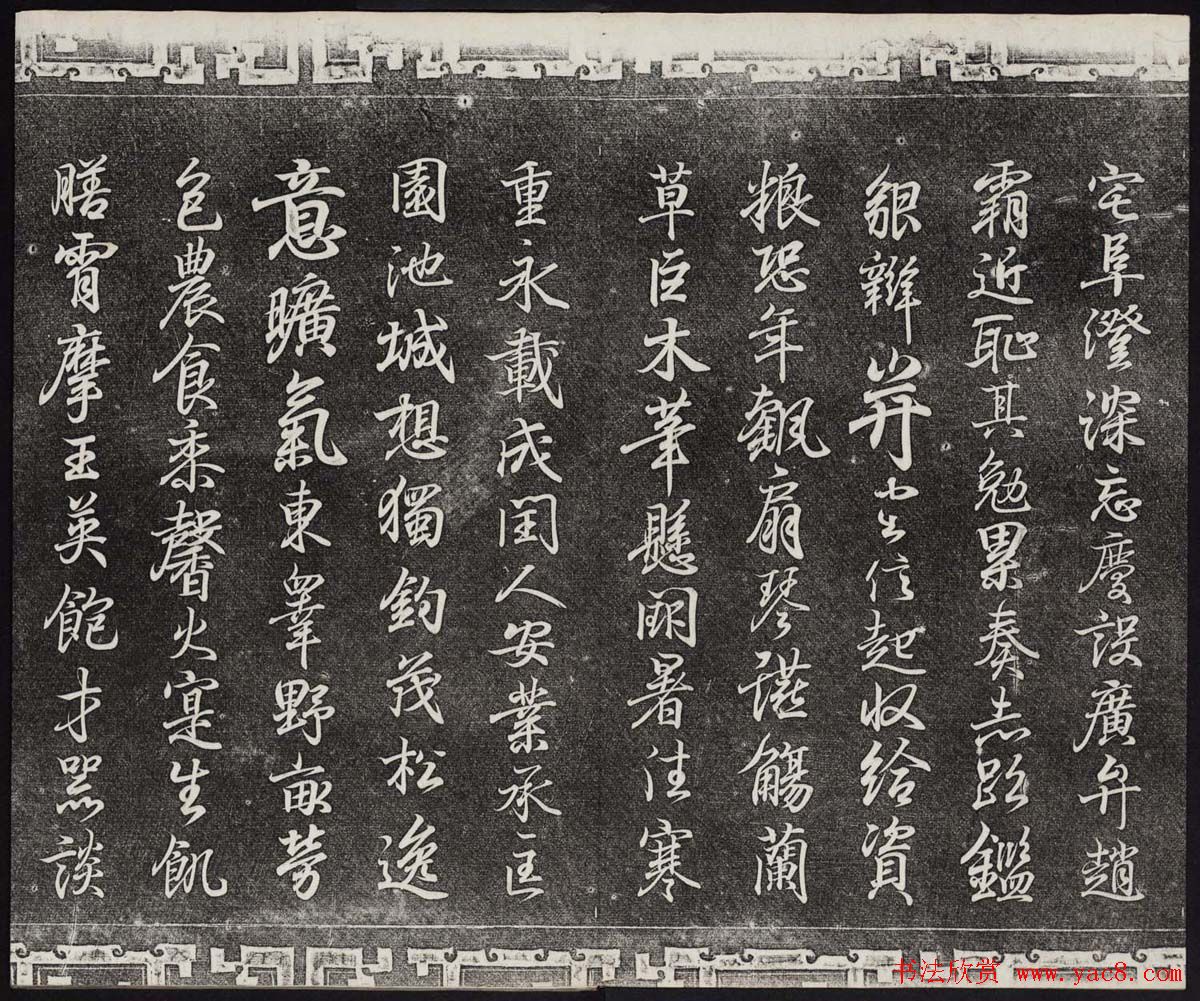 宅阜澄深忘慶設廣弁趙
霜近恥其勉累奏志鑑
貌辨并信起收給資
粮恐年飄扇琴觴蘭
草巨木筆懸暑往寒
重永載成閏人安業承匡
園池城想獨鈞茂松逸
意曠氣東睪野畝勞
色農食黍馨火寔生飢
膳霄摩王英飽才器談
书法欣赏 www.yac8.com